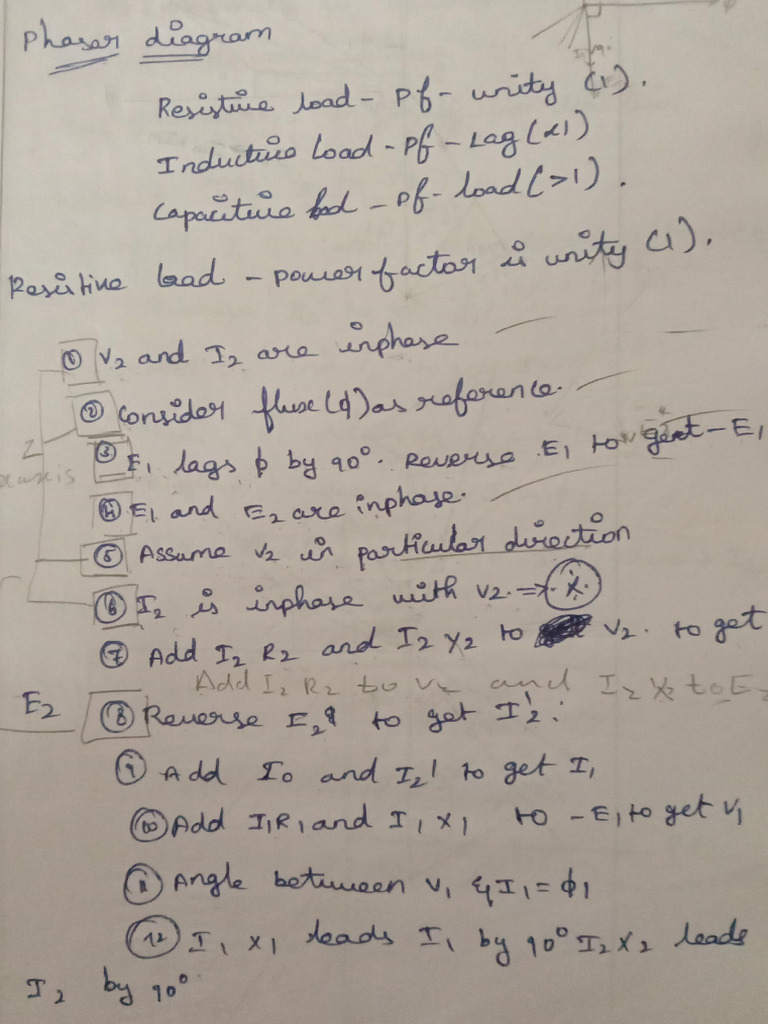 Phasor diagram
Resistive load - Pf - unity (1).
Inductive Load - Pf - Lag (<1)
Capacitive load - Pf - load (>1).
Resistive load - power factor is unity (1).
① V₂ and I₂ are inphase
② Consider flux (ϕ) as reference.
③ E₁ lags ϕ by 90°. Reverse E₁ to get - E₁
④ E₁ and E₂ are inphase.
⑤ Assume V₂ in particular direction
⑥ I₂ is inphase with V₂. ⇒
⑦ Add I₂ R₂ and I₂ X₂ to V₂. to get
Add I₂ R₂ to V₂ and I₂ X₂ to E₂
E₂
⑧ Reverse I₂ to get I₂'.
⑨ Add I₀ and I₂' to get I₁
⑩ Add I₁R₁ and I₁ X₁ to - E₁ to get V₁
⑪ Angle between V₁ & I₁ = ϕ₁
⑫ I₁ X₁ leads I₁ by 90° I₂X₂ leads
I₂ by 90°